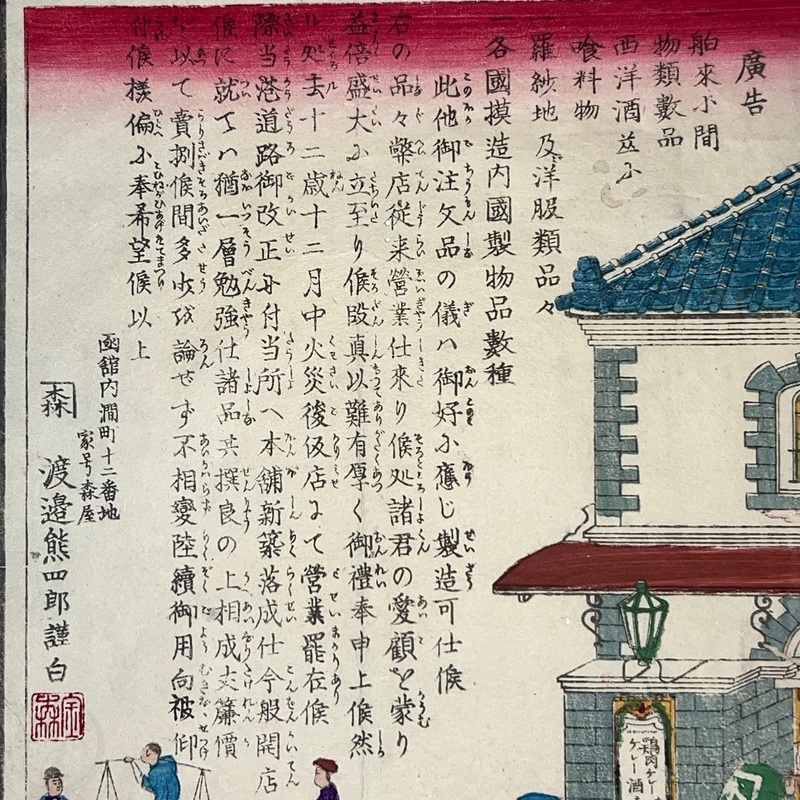 廣告
一舶来小間
物類數品
西洋酒並ニ
喰料物
一羅紗地及洋服類品々
一各國摸造内國製物品數種
此他御注文品の儀ハ御好ニ應じ製造可仕候
右の品々弊店従来營業仕来り候処諸君の愛顧を蒙り
益倍盛大ニ立至り候段真以難有厚く御禮奉申上候然
ル処去十二歳十二月中火災後仮店にて營業罷在候
際当港道路御改正ニ付当所へ本舗新築落成仕今般開店
候に就てハ猶一層勉強仕諸品共撰良の上相成丈廉價
を以て賣捌候間多少を論せず不相變陸續御用向被仰
付候様偏ニ奉希望候以上
函館内澗町十二番地
家号森屋
森 渡邉熊四郎謹白
鶏肉カレー